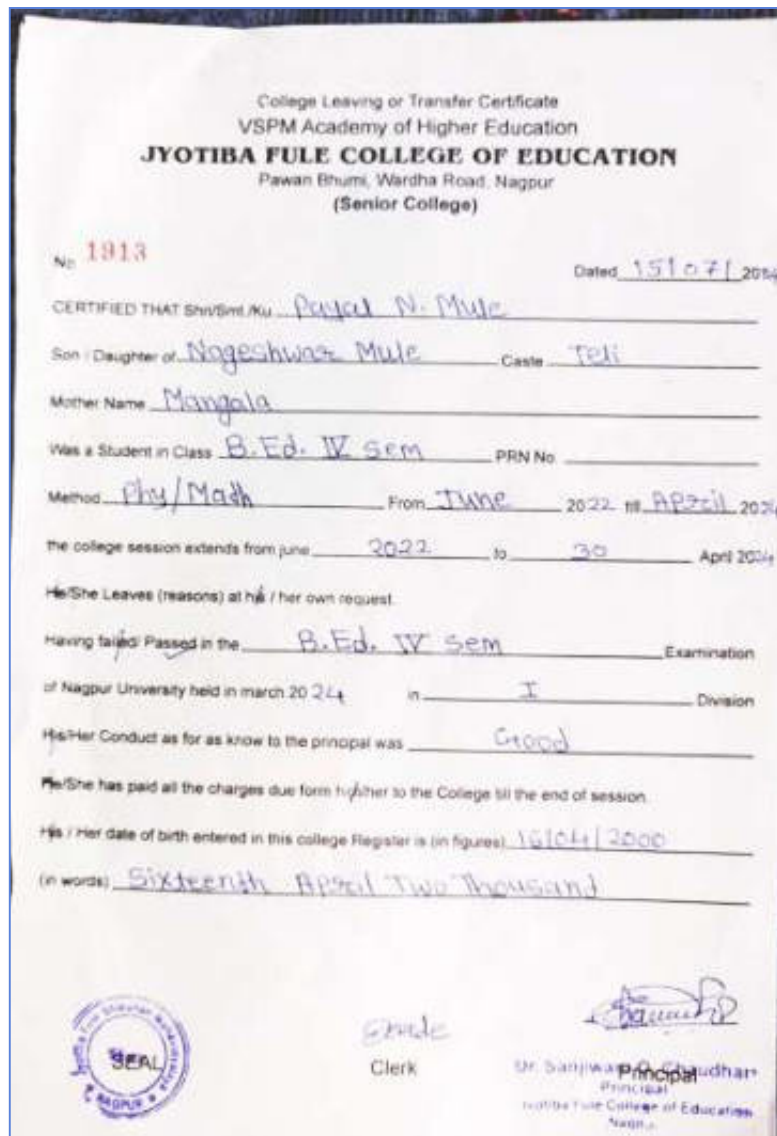 College Leaving or Transfer Certificate
VSPM Academy of Higher Education
JYOTIBA FULE COLLEGE OF EDUCATION
Pawan Bhumi, Wardha Road, Nagpur
(Senior College)
No 1913
Dated 15/07/ 2024
CERTIFIED THAT Shri/Smt./Ku. Payal N. Mule
Son / Daughter of Nageshwar Mule Caste Teli
Mother Name Mangala
Was a Student in Class B.Ed. IV Sem PRN No
Method Phy/Math From June 2022 till April 2024
the college session extends from june 2022 to 30 April 2024
He/She Leaves (reasons) at his / her own request.
Having failed/ Passed in the B.Ed. IV Sem Examination
of Nagpur University held in march 2024 in I Division
His/Her Conduct as for as know to the prinopal was Good
He/She has paid all the charges due form his/her to the College till the end of session.
His / Her date of birth entered in this college Register is (in figures) 16/04/2000
(in words) Sixteenth April Two Thousand
SEAL
NAGPUR
Clerk
Principal
Principal
Jyotiba Fule College of Education